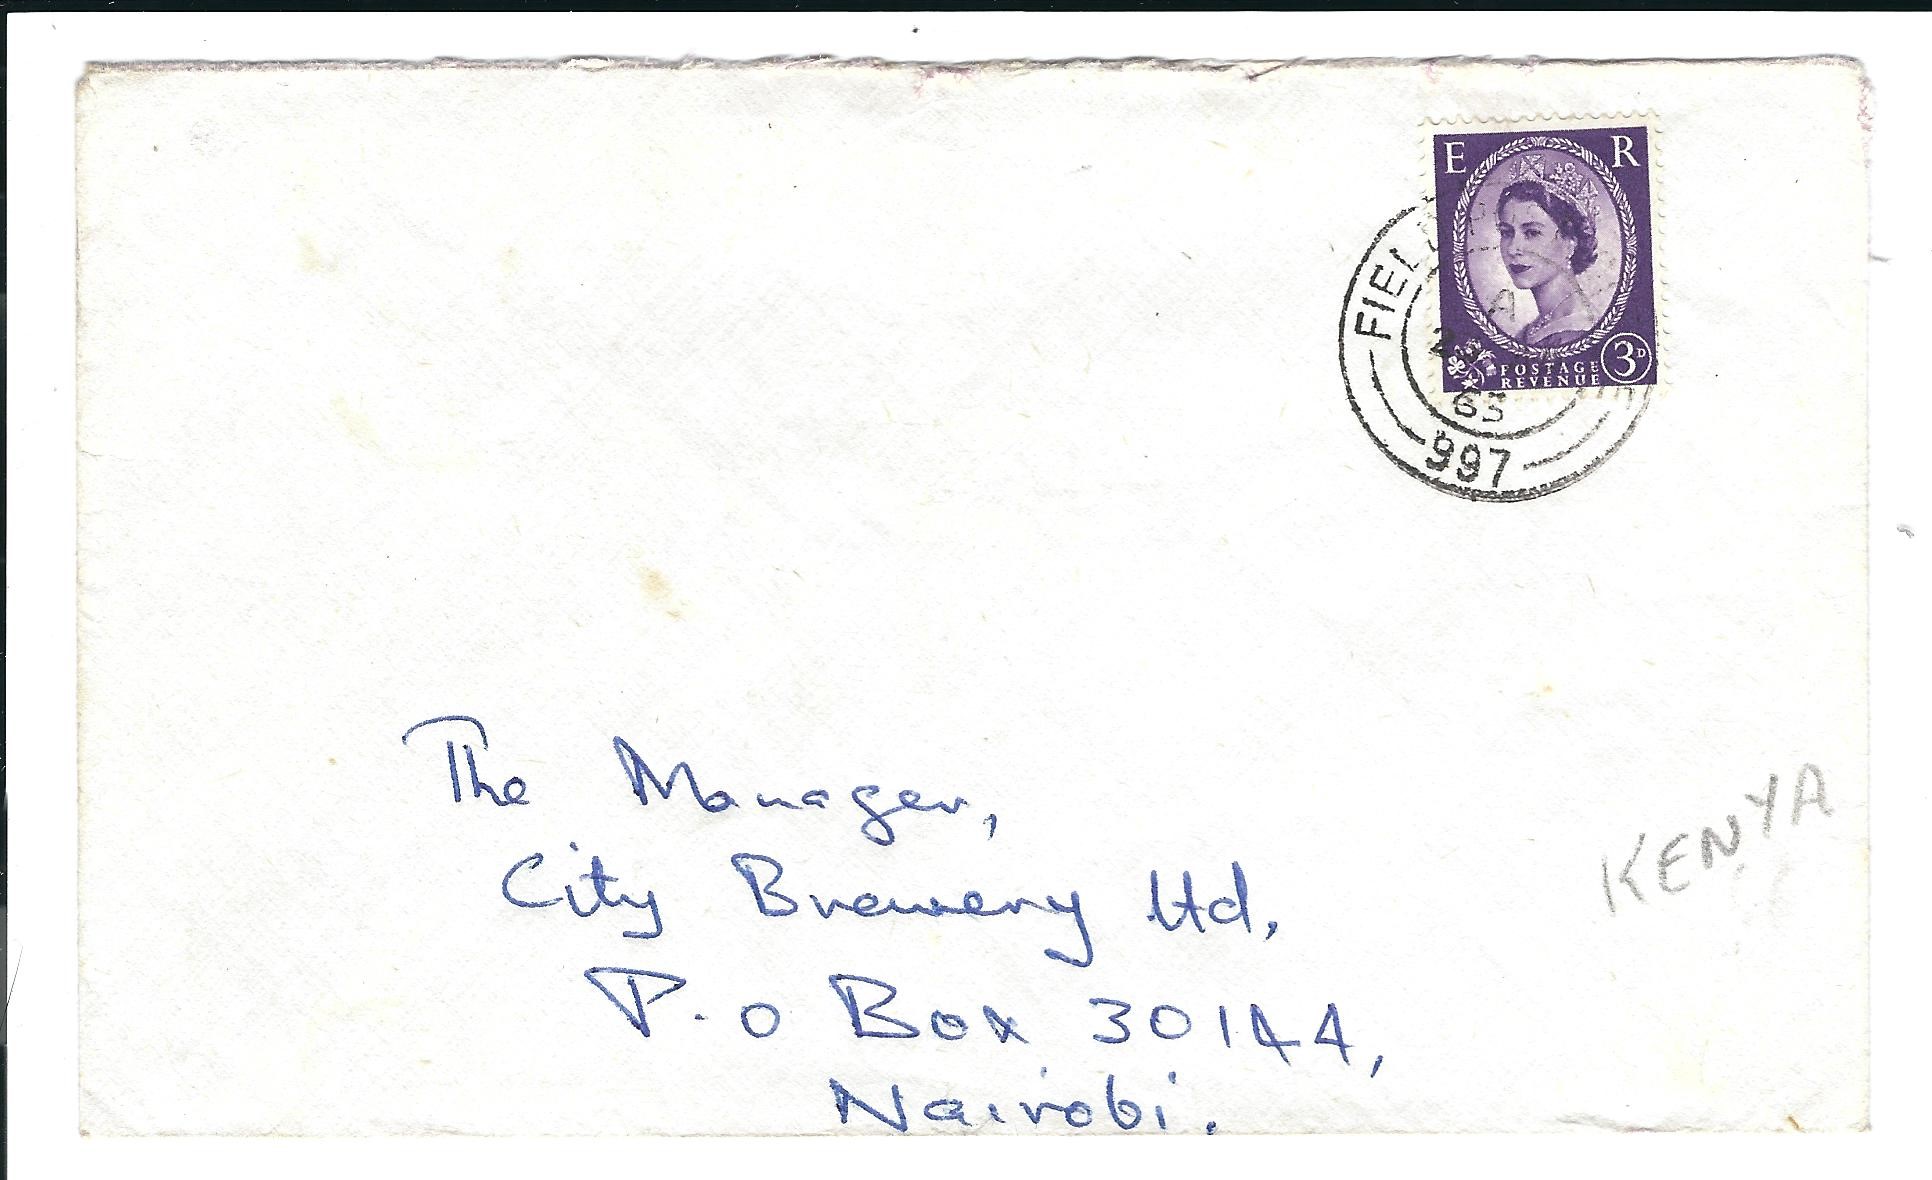 E R
3D
POSTAGE
REVENUE
A
63
997
The Manager,
City Brewery Ltd.
P.O Box 30144,
Nairobi.
KENYA